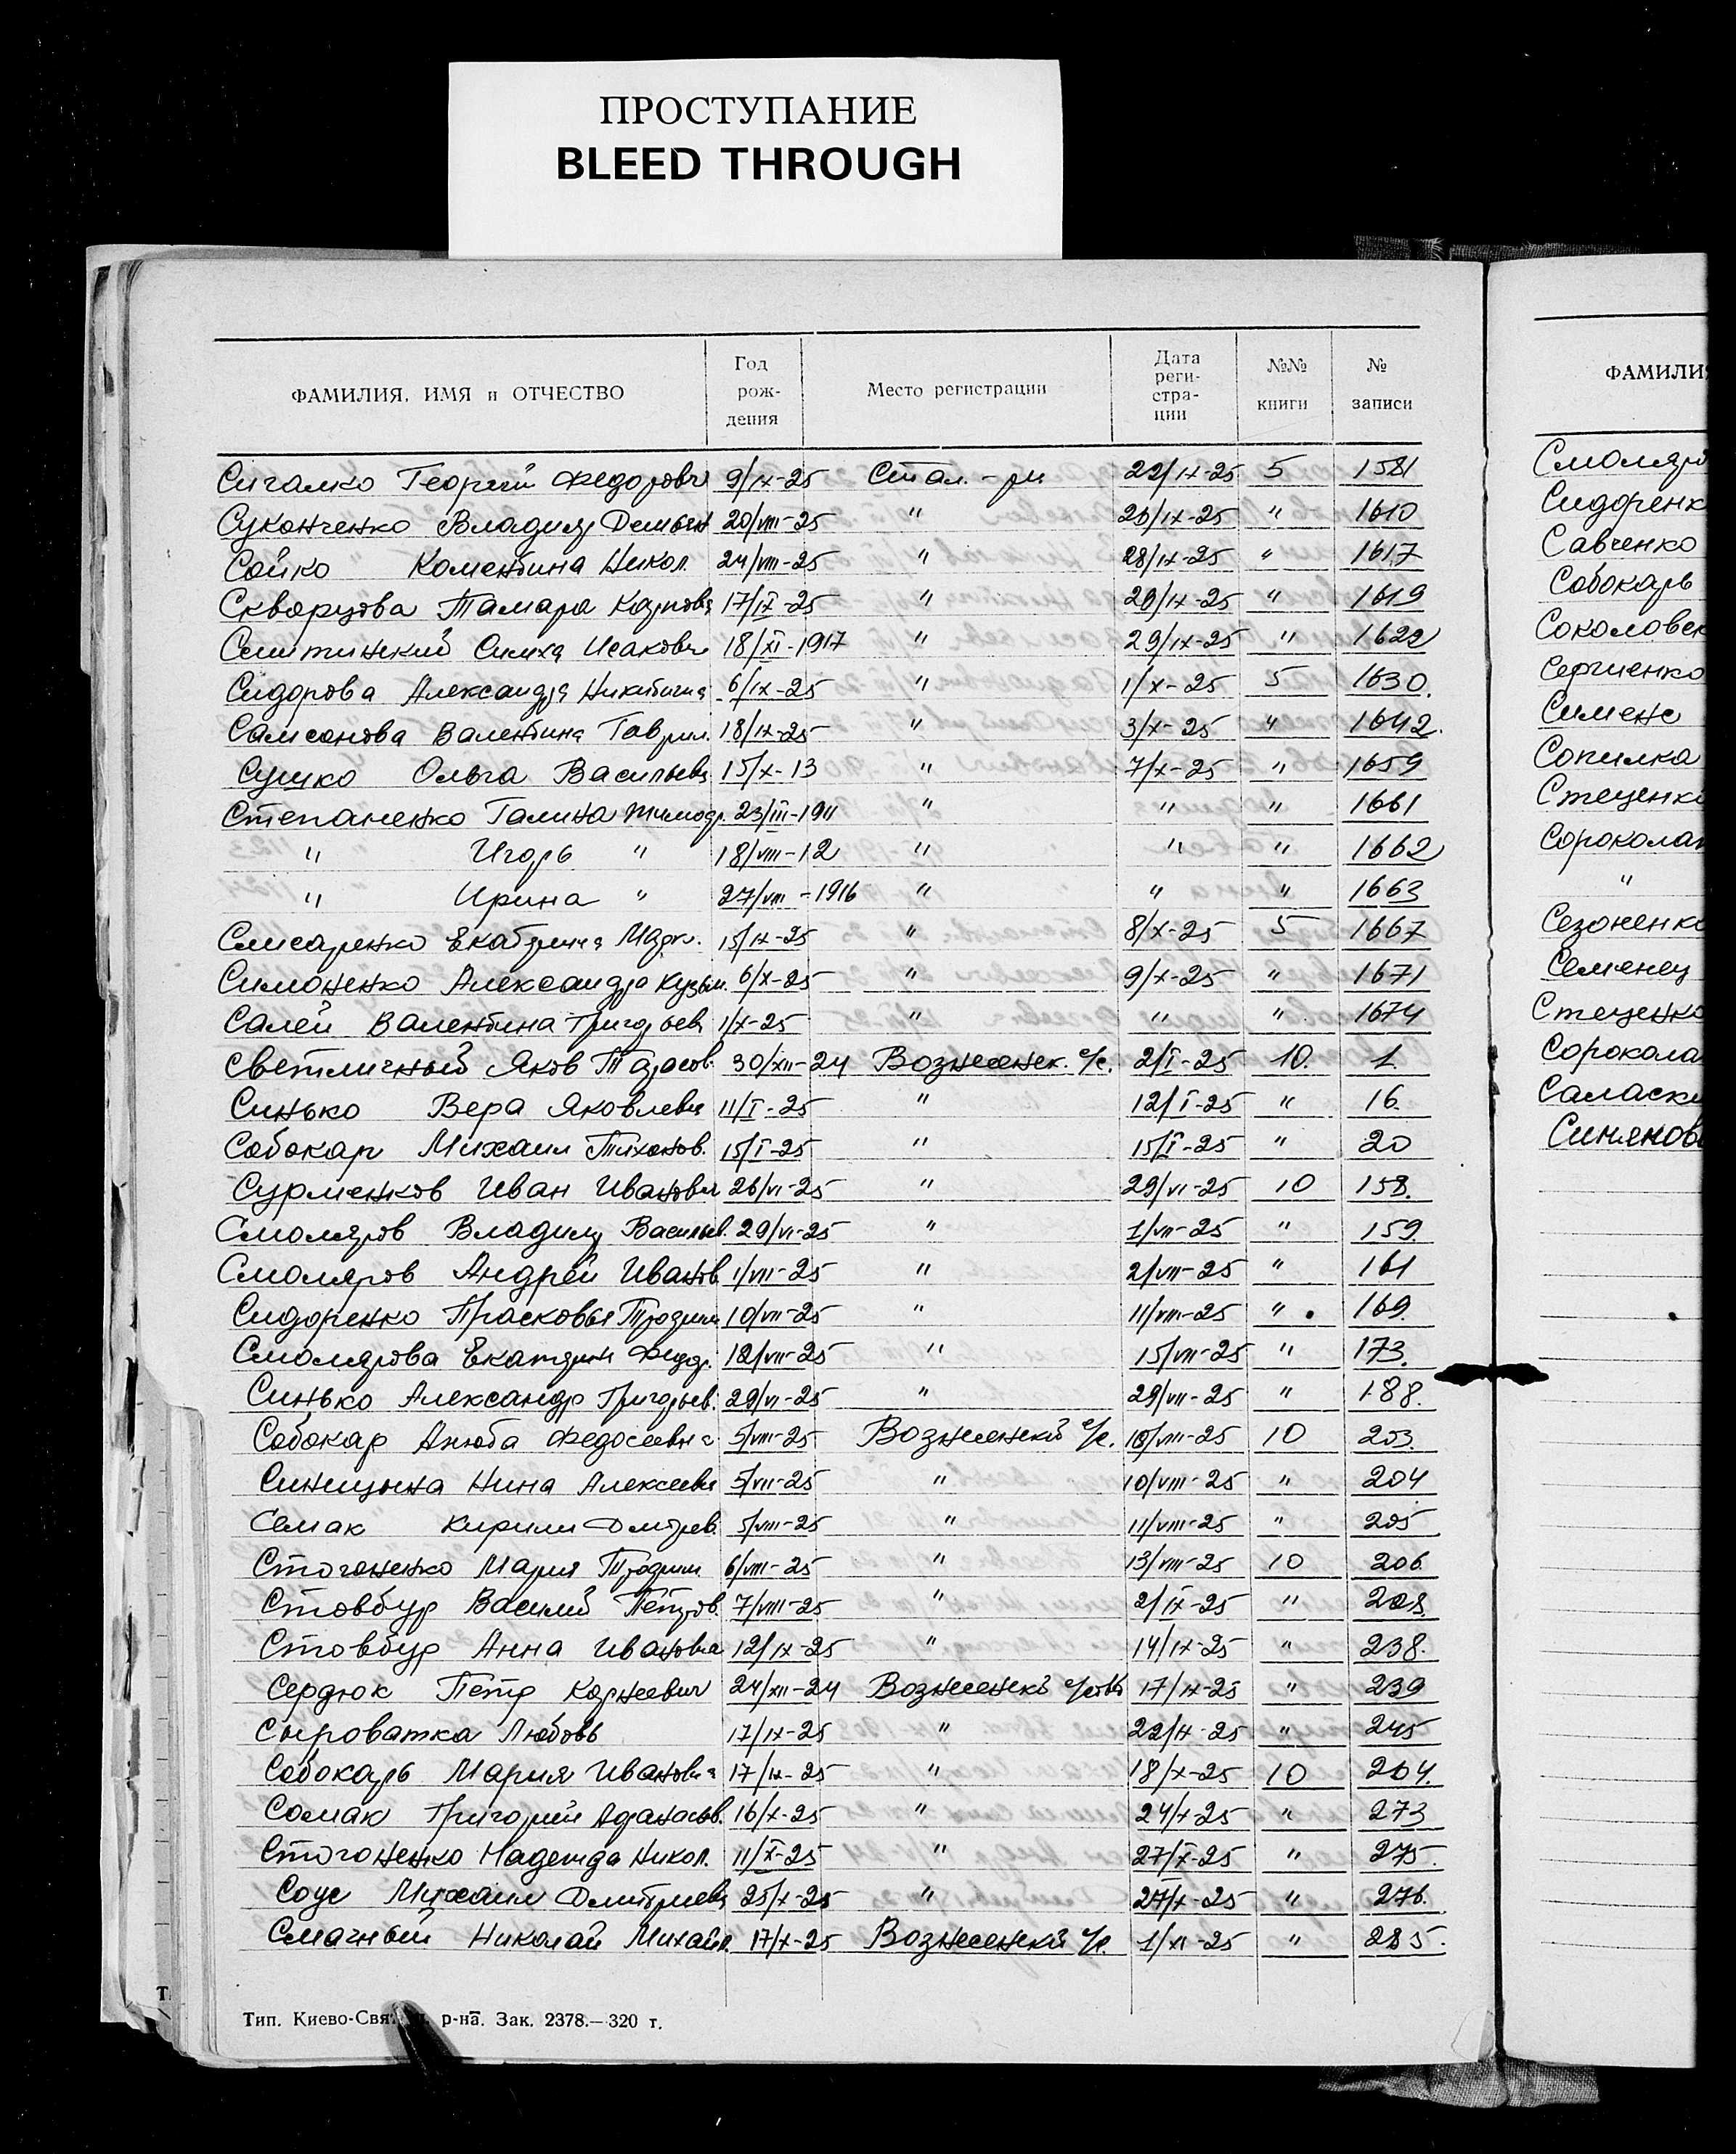 ПРОСТУПАНИЕ
BLEED THROUGH
ФАМИЛИЯ, ИМЯ и ОТЧЕСТВО Год рож-дения Место регистрации Дата реги-стра-ции №№ книги № записи
Сигалко Георгий Федорович 9/IX-25 Стал.-ри 22/IX-25 5 1581
Суконченко Владимир Демьян 20/VIII-25 " 26/IX-25 " 1610
Сойко Коментина Никол. 24/VIII-25 " 28/IX-25 " 1617
Скворцова Тамара Карповна 17/IX-25 " 29/IX-25 " 1619
Симха Исакович 18/XI-1917 " 29/IX-25 " 1622
Сидорова Александра Никитична 6/IX-25 " 1/X-25 5 1630.
Самсонова Валентина Гаврил. 18/IX-25 " 3/X-25 " 1642.
Сушко Ольга Васильевн 15/X-13 " 7/X-25 " 1659
Степаненко Галина Тимофр. 23/III-1911 " " " 1661
" Игорь " 18/VIII-12 " " " 1662
" Ирина " 27/VIII-1916 " " " 1663
Слисаренко Екатерина Марк. 15/IX-25 " 8/X-25 5 1667
Симоненко Александра Кузьм. 6/X-25 " 9/X-25 " 1671
Салей Валентина Григорьев 1/X-25 " " " 1674
Светличный Яков Тарасов. 30/XII-24 Вознесенск. с/с. 2/I-25 10. 1.
Синько Вера Яковлевна 11/I-25 " 12/I-25 " 16.
Собокар Михаил Тихонов. 15/I-25 " 15/I-25 " 20
Сурменков Иван Иванович 26/VI-25 " 29/VI-25 10 158.
Смоляров Владимир Васильев. 29/VI-25 " 1/VII-25 " 159.
Смоляров Андрей Иванов. 1/VII-25 " 2/VII-25 " 161
Сидоренко Прасковья Трофим 10/VII-25 " 11/VIII-25 " 169.
Смолярова Екатерин Федор. 12/VII-25 " 15/VII-25 " 173.
Синько Александр Григорьев. 29/VI-25 " 29/VII-25 " 188.
Собокар Анюта Федосеевна 5/VIII-25 Вознесенский с/с. 10/VIII-25 10 203.
Синицына Нина Алексеевна 5/VII-25 " 10/VIII-25 " 204
Семак Кирилл Дмитрев. 5/VIII-25 " 11/VIII-25 " 205
Стогоненко Мария Трофим 6/VIII-25 " 13/VIII-25 10 206.
Стовбур Василий Петров. 7/VIII-25 " 2/IX-25 " 228.
Стовбур Анна Ивановна 12/IX-25 " 14/IX-25 " 238.
Сердюк Петр Корнеевич 24/XII-24 Вознесенск 17/IX-25 " 239
Сыроватка Любовь 17/IX-25 " 22/IX-25 " 245
Собокарь Мария Ивановна 17/IX-25 " 18/X-25 10 264.
Сомак Григорий Афанасьев. 16/X-25 " 24/X-25 " 273
Стогоненко Надежда Никол. 11/X-25 " 27/X-25 " 275.
Соус Михаил Дмитриев 25/X-25 " 27/X-25 " 276.
Смачный Николай Михайл. 17/X-25 Вознесенский с/с. 1/XI-25 " 285.
Тип. Киево-Свят р-на. Зак. 2378.—320 т.
ФАМИЛИЯ
Смоляро
Сидоренк
Савченко
Собокарь
Соколовск
Сергиенко
Сименс
Сопилка
Стеценко
Сороколат
"
Сезоненко
Семенец
Стеценко
Сорокола
Саласки
Синянов